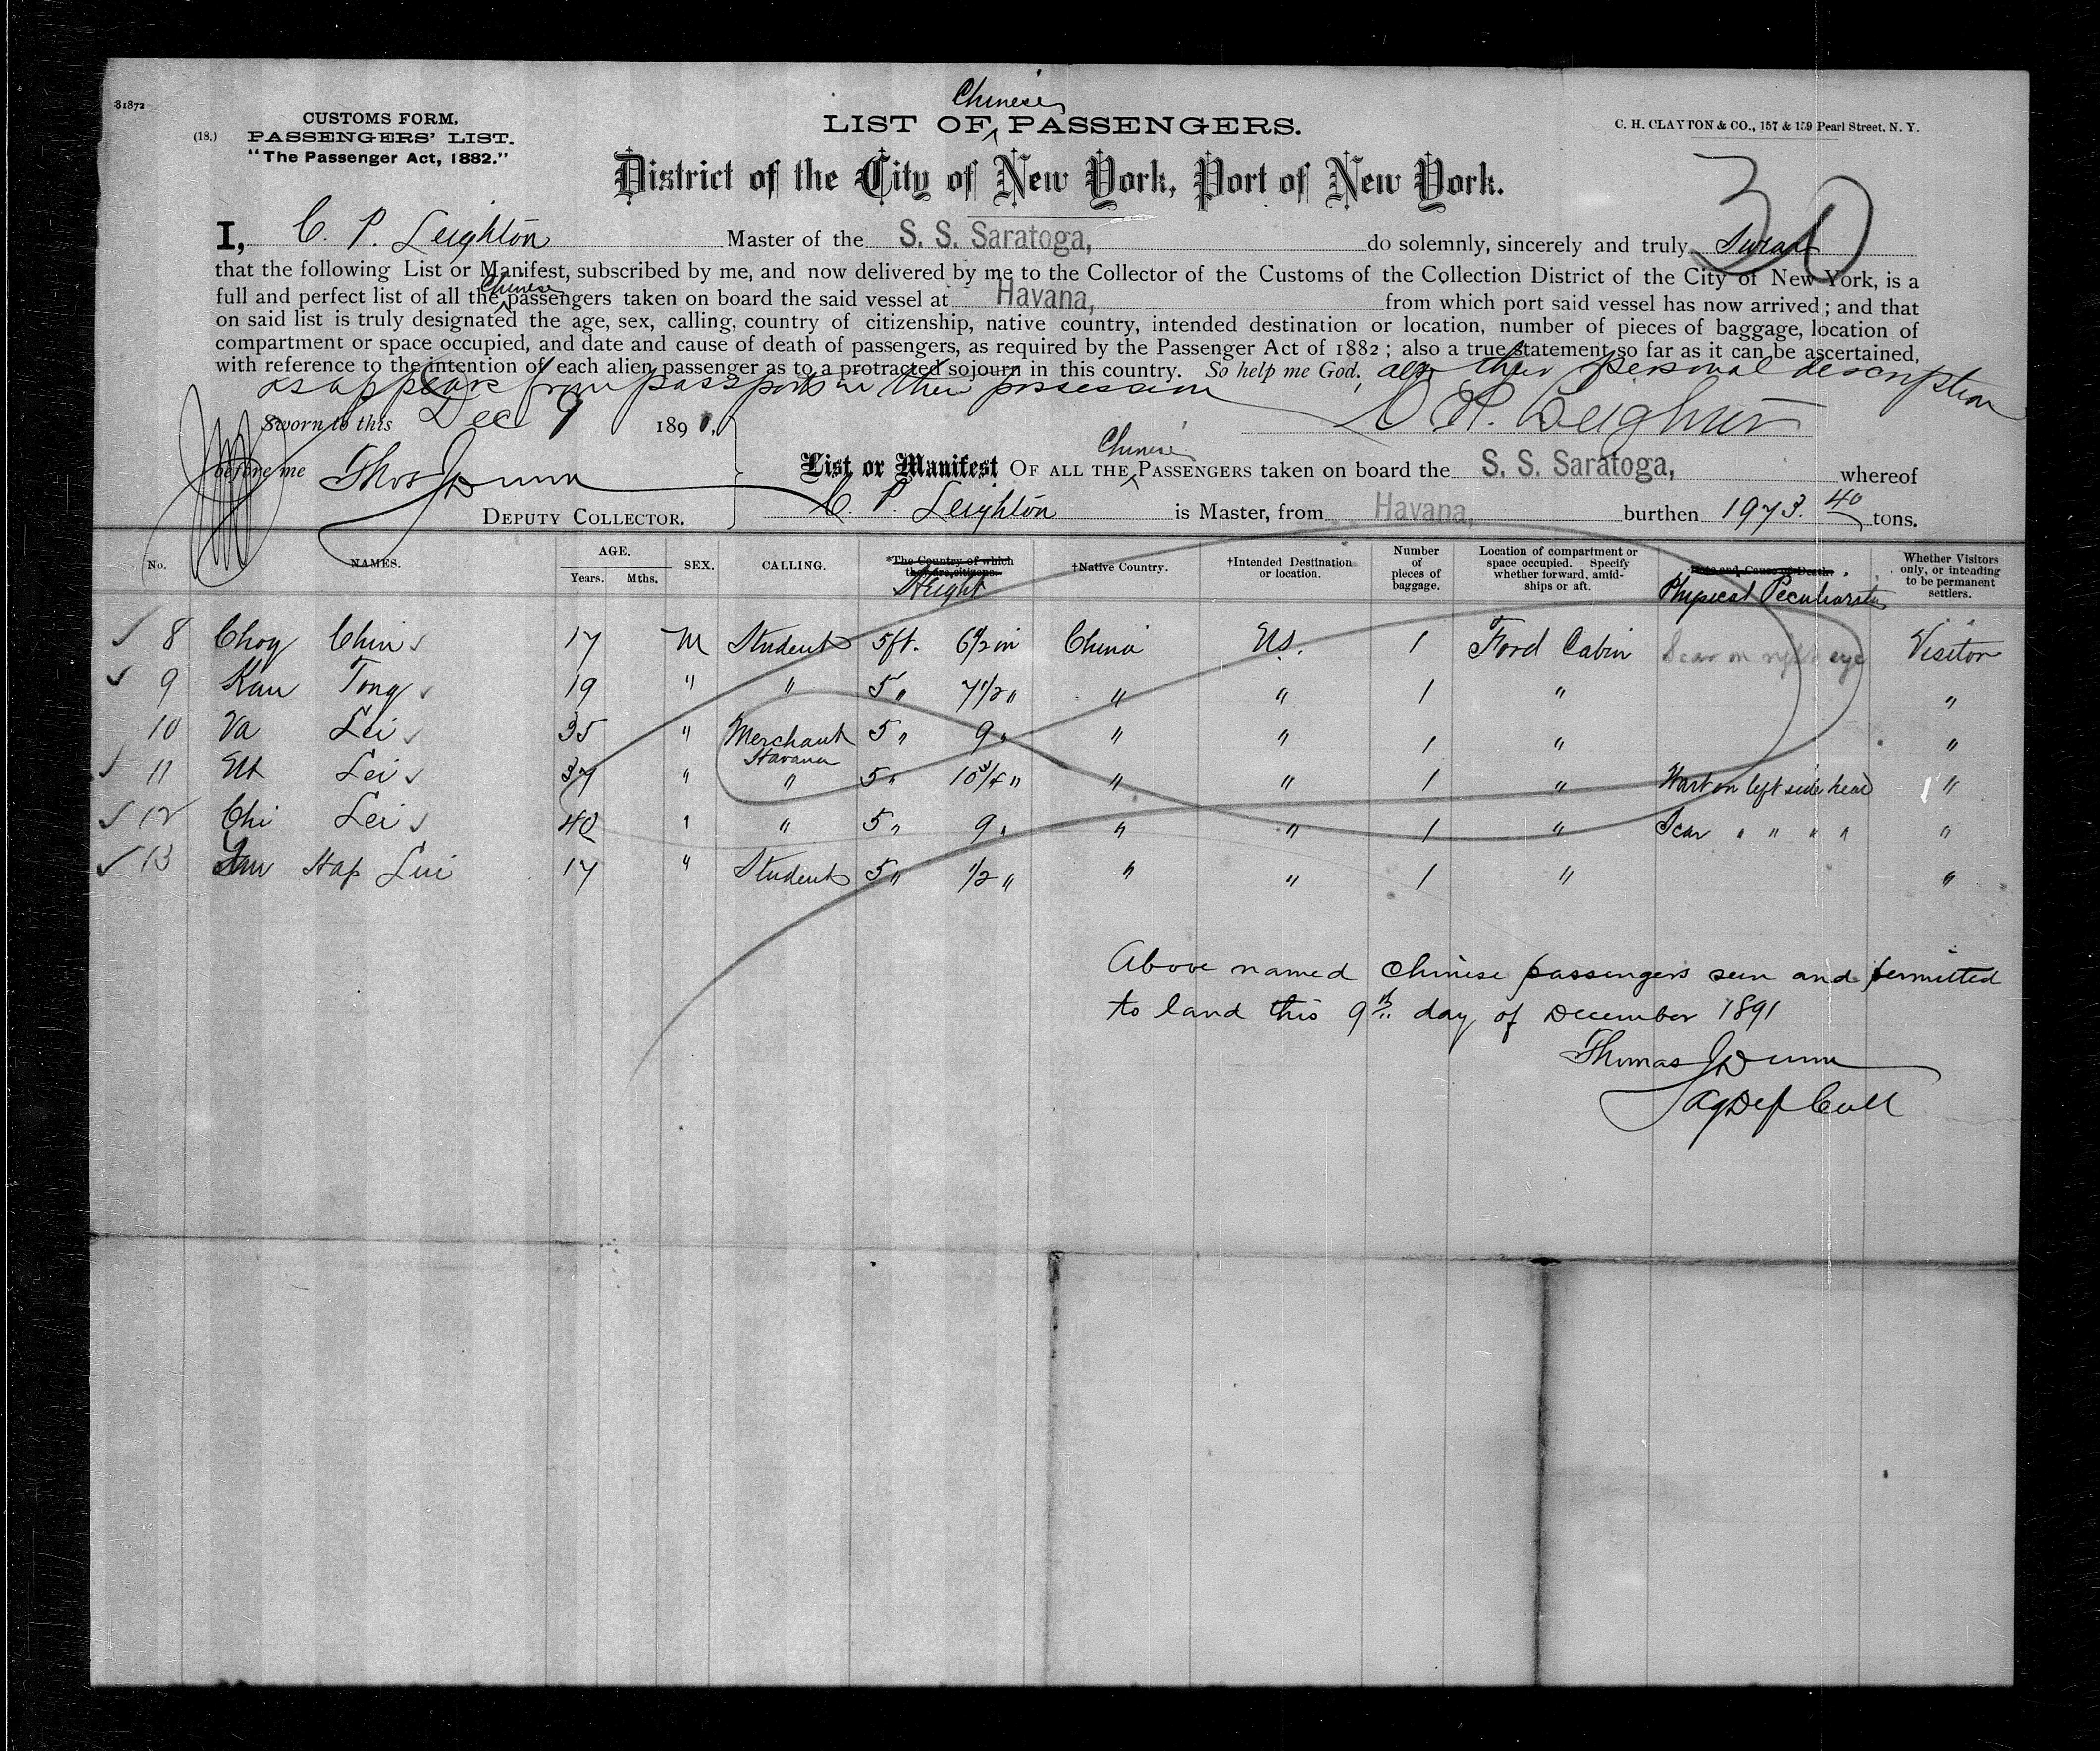 81872
CUSTOMS FORM.
(18.) PASSENGERS' LIST.
"The Passenger Act, 1882."
Chinese
LIST OF PASSENGERS.
C. H. CLAYTON & CO., 157 & 159 Pearl Street, N. Y.
District of the City of New York, Port of New York.
30
I, C. P. Leighton Master of the S. S. Saratoga, do solemnly, sincerely and truly Swear
that the following List or Manifest, subscribed by me, and now delivered by me to the Collector of the Customs of the Collection District of the City of New York, is a
Chinese
full and perfect list of all the passengers taken on board the said vessel at Havana, from which port said vessel has now arrived; and that
on said list is truly designated the age, sex, calling, country of citizenship, native country, intended destination or location, number of pieces of baggage, location of
compartment or space occupied, and date and cause of death of passengers, as required by the Passenger Act of 1882; also a true statement so far as it can be ascertained,
with reference to the intention of each alien passenger as to a protracted sojourn in this country. So help me God. also their personal description
as appears from passports in their possession
Sworn to this Dec 9 1891,
C. P. Leighton
before me Thos J Dunn
DEPUTY COLLECTOR.
Chinese
List or Manifest OF ALL THE PASSENGERS taken on board the S. S. Saratoga, whereof
C. P. Leighton is Master, from Havana, burthen 1973. 40 tons.
No. NAMES. AGE. Years. Mths. SEX. CALLING. *The Country of which they are citizens. Height †Native Country. †Intended Destination or location. Number of pieces of baggage. Location of compartment or space occupied. Specify whether forward, amidships or aft. Date and Cause of Death. Physical Peculiarities Whether Visitors only, or intending to be permanent settlers.
8 Choy Chin 17 M Student 5ft. 6 1/2 in China U.S. 1 Ford Cabin Scar on right eye Visitor
9 Kau Tong 19 " " 5 " 7 1/2 " " " 1 " "
10 Va Lei 35 " Merchant Havana 5 " 9 " " " 1 " "
11 Lei 37 " " 5 " 10 3/4 " " " 1 " Wart on left side head "
12 Chi Lei 40 " " 5 " 9 " " " 1 " Scar " " " " "
13 Hap Lui 17 " Student 5 " 1/2 " " " 1 " "
Above named Chinese passengers seen and permitted
to land this 9th day of December 1891
Thomas J Dunn
Ag Dep Coll